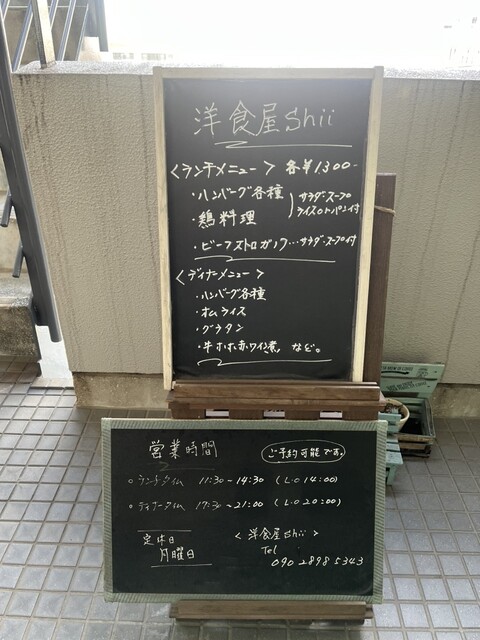 洋食屋Shii
<ランチメニュー> 各¥1,300-
・ハンバーグ各種
・鶏料理
サラダ・スープ
ライスorパン付
・ビーフストロガノフ…サラダ・スープ付
<ディナーメニュー>
・ハンバーグ各種
・オムライス
・グラタン
・牛ホホ赤ワイン煮 など。
営業時間
ご予約可能です。
○ランチタイム 11:30-14:30 (L.O 14:00)
○ディナータイム 17:30-21:00 (L.O 20:00)
定休日
月曜日
<洋食屋Shii>
Tel
090 2898 5343